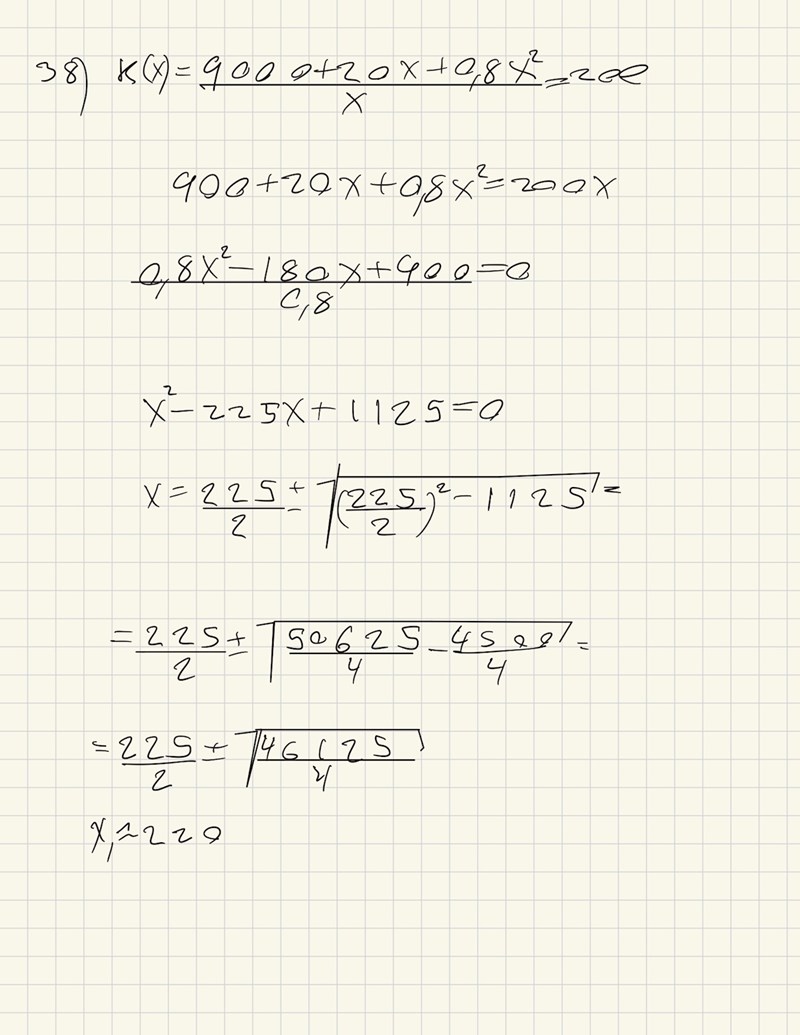 38) K(x) = (9000+20x+0,8x²)/x = 200
900+20x+0,8x²=200x
(0,8x²-180x+900)/0,8=0
x²-225x+1125=0
x = 225/2 ± √((225/2)²-1125) =
= 225/2 ± √(50625/4 - 4500/4) =
= 225/2 ± √(46125/4)
x₁≈220